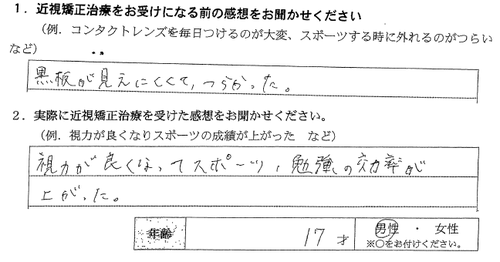 1．近視矯正治療をお受けになる前の感想をお聞かせください
（例．コンタクトレンズを毎日つけるのが大変、スポーツする時に外れるのがつらい
など）
黒板が見えにくくて、つらかった。
2．実際に近視矯正治療を受けた感想をお聞かせください。
（例．視力が良くなりスポーツの成績が上がった　など）
視力が良くなってスポーツ，勉強の効率が
上がった。
年齢　17才　男性　・　女性
※○をお付けください。